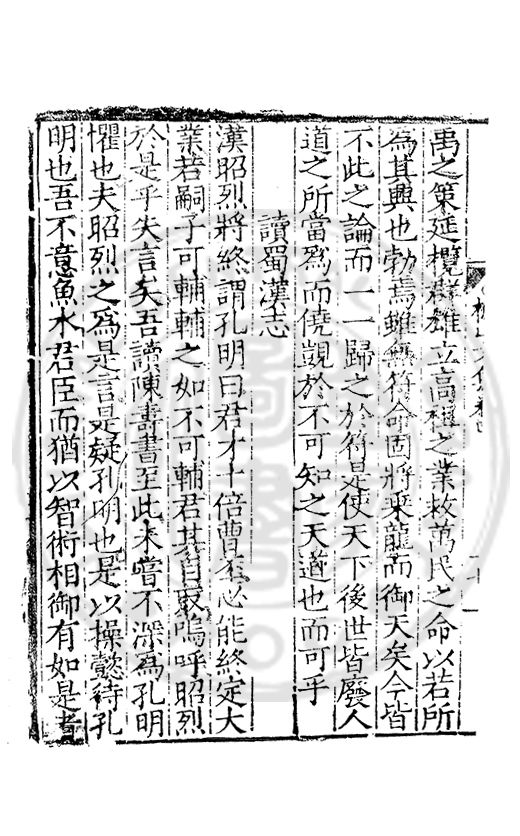 禹之策延攬群雄立高祖之業救萬民之命以若所
為其興也勃焉雖無符命固將乘龍而御天矣今皆
不此之論而一一歸之於符是使天下後世皆廢人
道之所當為而僥覬於不可知之天道也而可乎
讀蜀漢志
漢昭烈將終謂孔明曰君才十倍曹丕必能終定大
業若嗣子可輔輔之如不可輔君其自取嗚呼昭烈
於是乎失言矣吾讀陳壽書至此未嘗不深為孔明
懼也夫昭烈之為是言是疑孔明也是以操懿待孔
明也吾不意魚水君臣而猶以智術相御有如是者